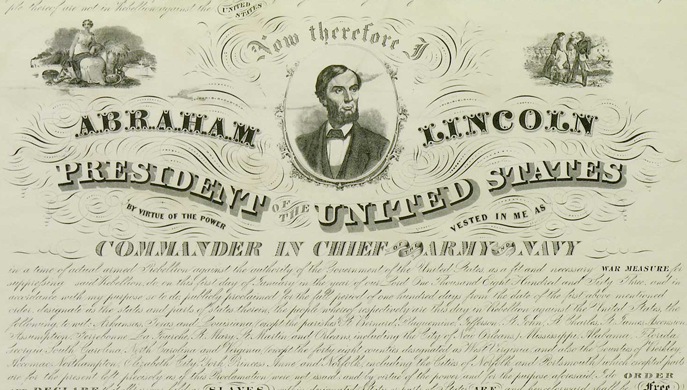 ple thereof are not in Rebellion against the UNITED STATES
Now therefore I
ABRAHAM LINCOLN
PRESIDENT OF THE UNITED STATES
BY VIRTUE OF THE POWER VESTED IN ME AS
COMMANDER IN CHIEF OF THE ARMY AND NAVY
in a time of actual armed Rebellion against the authority of the Government of the United States as a fit and necessary WAR MEASURE for
suppressing said Rebellion, do on this first day of January in the year of our Lord One Thousand Eight Hundred and Sixty Three, and in
accordance with my purpose so to do, publicly proclaimed for the full period of one hundred days from the date of the first above mentioned
order, designate as the states and parts of States therein, the people whereof respectively are this day in Rebellion against the United States, the
following to wit: Arkansas, Texas and Louisiana, (except the parishes St Bernard, Plaquemine, Jefferson, St John, St Charles, St James, Ascension
Assumption, Terrebonne, La Fourche, St Mary, St Martin and Orleans including the City of New Orleans) Mississippi, Alabama, Florida,
Georgia, South Carolina, North Carolina and Virginia, (except the forty eight counties designated as West Virginia, and also the counties of Berkley
Accomac, Northampton, Elizabeth City, York, Princess Anne and Norfolk, including the Cities of Norfolk and Portsmouth) which excepted parts
are for the present left precisely as if this Proclamation were not issued; and by virtue of the power and for the purpose aforesaid I do ORDER
DECLARE SLAVES ARE Free